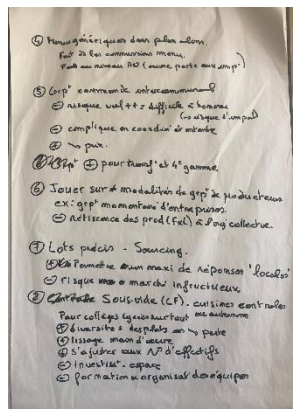 ④ Homogénériques dans plan alim.
Fait ds les commissions menu.
⑤ Grpt commande intercommunal
⊖ risque vol ++ = difficile à honorer
(↳ risque d'import
⊖ complique en coordin° et entente
⊕ ↘ prix.
⊕ pour transf° et 4e gamme.
⑥ Jouer sur ≠ modalités de grpt de producteurs
ex: grpt momentané d'entreprises.
⊖ réticence des prod (F&L) à l'org collective.
⑦ Lots précis - Sourcing.
⊕ Permettre un maxi de réponses "locales"
⊖ risque marché infructueux
⑧ Sous vide (CF). cuisines centrales
Pour collèges lycées surtout
⊕ diversité des plats
⊕ lissage main d'œuvre
⊕ s'ajuster aux N° d'effectifs
⊖ investiss. espace
⊖ formation organisat° des équipes